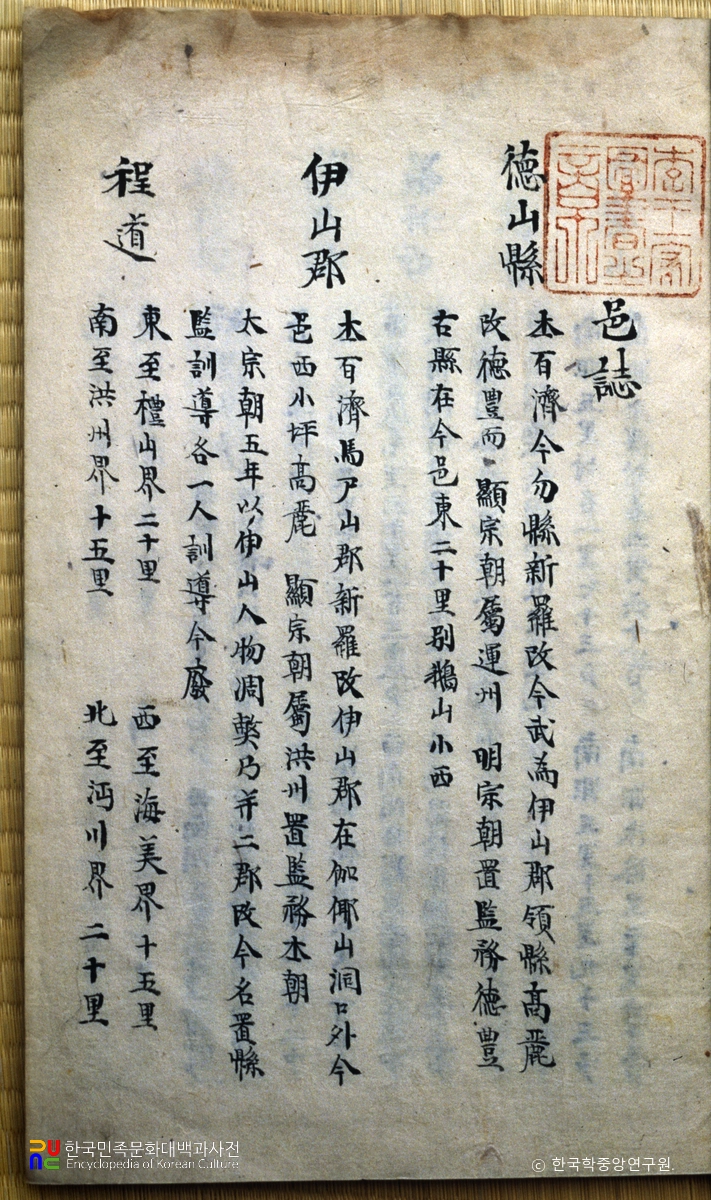 李王家圖書之章
邑誌
德山縣
本百濟今勿縣新羅改今武為伊山郡領縣高麗
改德豊而 顯宗朝屬運州 明宗朝置監務德豊
古縣在今邑東二十里別鵝山小西
伊山郡
本百濟馬尸山郡新羅改伊山郡在伽倻山洞口外今
邑西小坪高麗 顯宗朝屬洪州置監務本朝
太宗朝五年以伊山人物凋弊乃并二郡改今名置縣
監訓導各一人訓導今廢
程道
東至禮山界二十里 西至海美界十五里
南至洪州界十五里 北至沔川界二十里
한국민족문화대백과사전
Encyclopedia of Korean Culture
© 한국학중앙연구원.